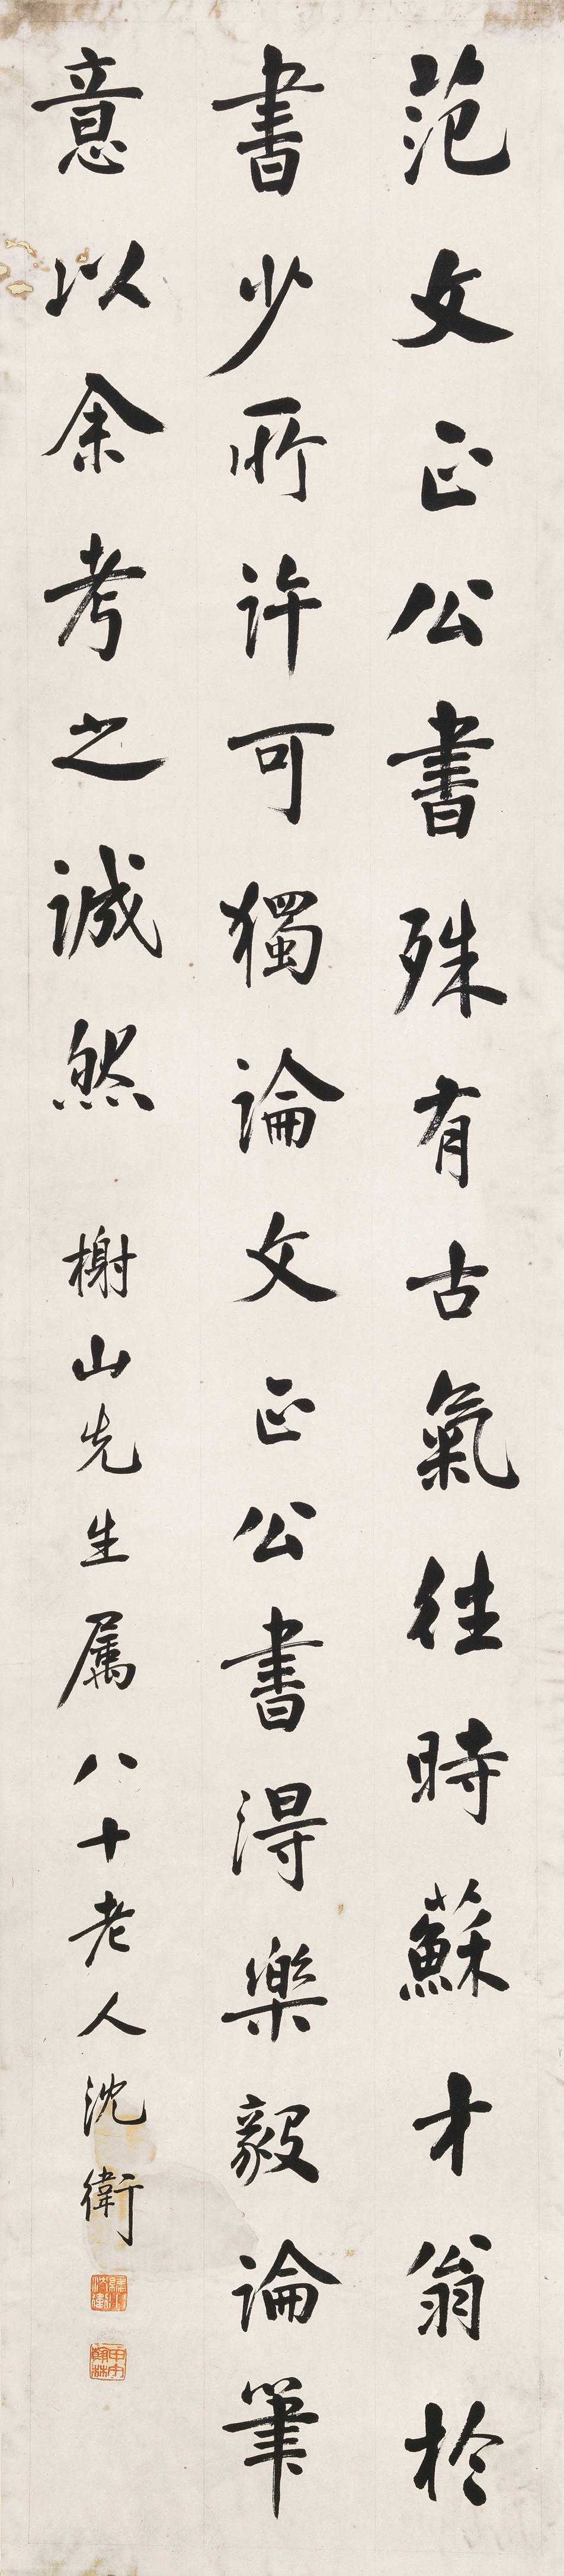 范文正公書殊有古氣往時蘇才翁於
書少所許可獨論文正公書得樂毅論筆
意以余考之誠然 榭山先生属八十老人沈衛